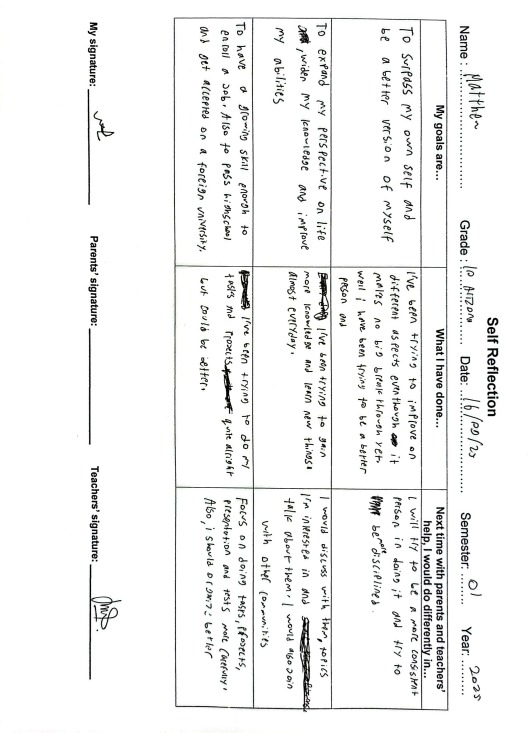 Self Reflection
Name : Matthew Grade : 10 Arizona Date: 16/09/25 Semester: 01 Year: 2025
My goals are...
What I have done...
Next time with parents and teachers'
help, I would do differently in...
To surpass my own self and
be a better version of myself
I've been trying to improve on
different aspects eventhough it
makes no big break through yet.
well i have been trying to be a better
person and
I will try to be a more consistent
person in doing it and try to
be more disciplined.
To expand my perspective on life
, widen my knowledge and improve
my abilities
I've been trying to gain
more knowledge and learn new things
almost everyday.
I would discuss with them, topics
I'm interested in and
talk about them. I would also join
with other communities
To have a growing skill enough to
enroll a job. Also to pass highschool
and get accepted on a foreign university.
I've been trying to do my
tasks and projects quite alright
but could be better.
Focus on doing tasks, projects,
presentation and tests more carefully.
Also, i should organize better
My signature:
Parents' signature:
Teachers' signature: